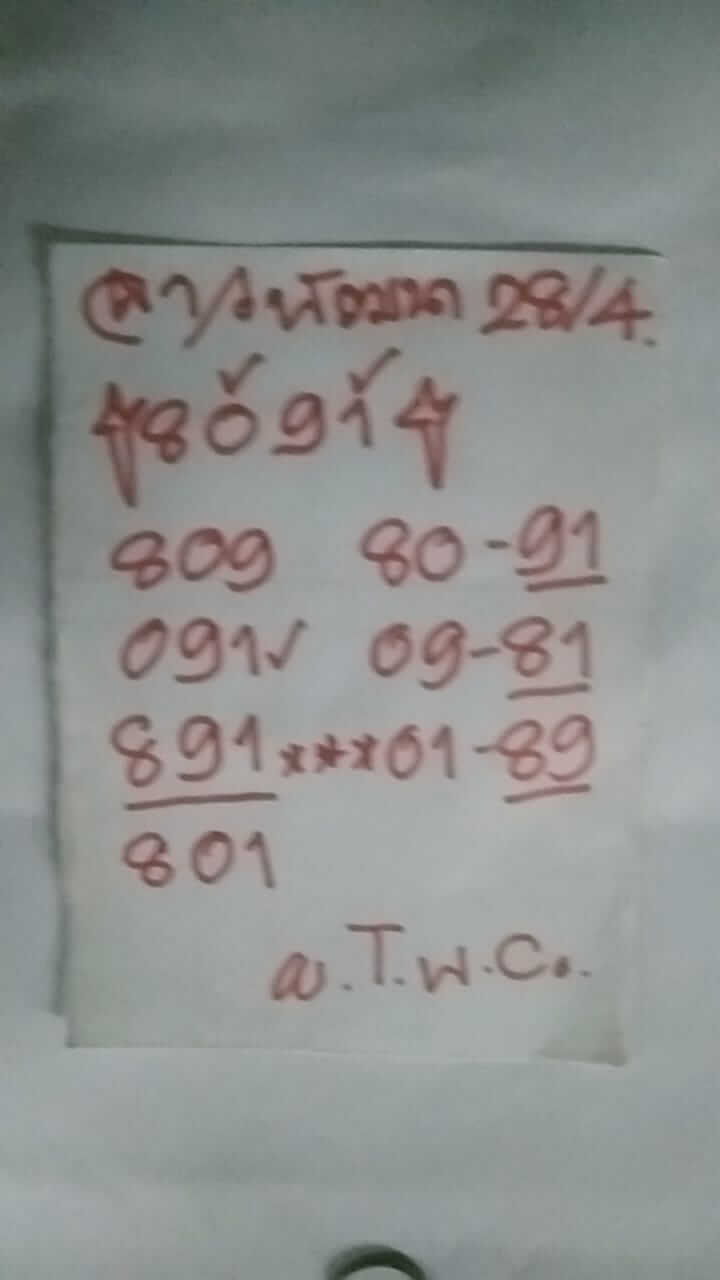 ลาวพัฒนา 28/4.
8 0 9 1
809 80-91
091✓ 09-81
891***01-89
801